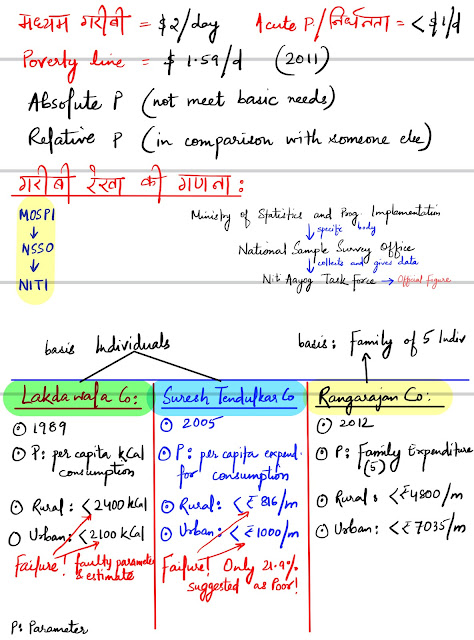 मध्यम गरीबी = $2/day Acute P/निर्धनता = <$1/d
Poverty line = $ 1.59/d (2011)
Absolute P (not meet basic needs)
Relative P (in comparison with someone else)
गरीबी रेखा की गणना:
MOSPI
↓
NSSO
↓
NITI
Ministry of Statistics and Prog. Implementation
↓ specific body
National Sample Survey Office
↓ collects and gives data
Niti Aayog Task Force → Official Figure
basis Individuals
basis: Family of 5 Indiv
Lakdawala Co:
1989
P: per capita kCal
consumption
Rural: <2400 kCal
Urban: <2100 kCal
Failure! faulty parameter
& estimate
Suresh Tendulkar Co
2005
P: per capita expend.
for consumption
Rural: <₹ 816/m
Urban: <₹1000/m
Failure! Only 21.9%
suggested as Poor!
Rangarajan Co:
2012
P: Family Expenditure
(5)
Rural: <₹4800/m
Urban: <₹7035/m
P: Parameter